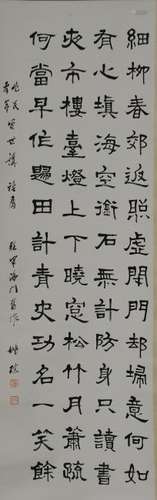 細柳春郊返照虛閉門却掃意何如
有心填海空銜石無計防身只讀書
夾市樓臺燈上下曉窓松竹月蕭疏
何當早作歸田計青史功名一笑餘
世講
舊作